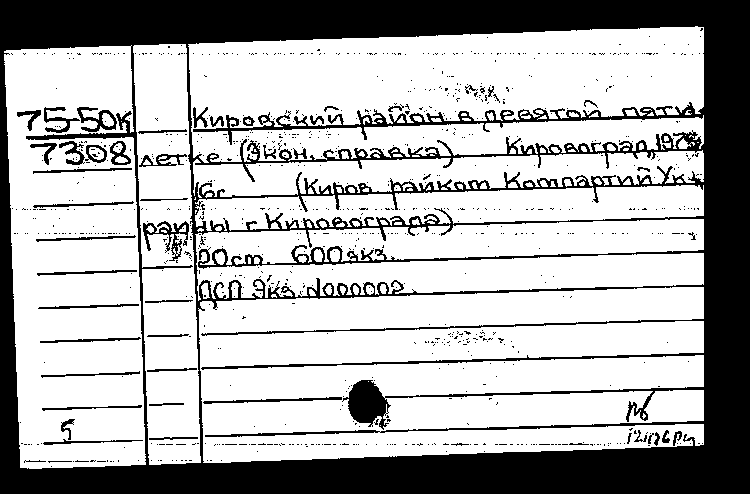 75-50К Кировский район в девятой пяти-
7308 летке. (Экон. справка). Кировоград, 1975
16с. (Киров. райком Компартий Ук-
раины г. Кировограда)
20см. 600экз.
ДСП Экз. №000002.
5